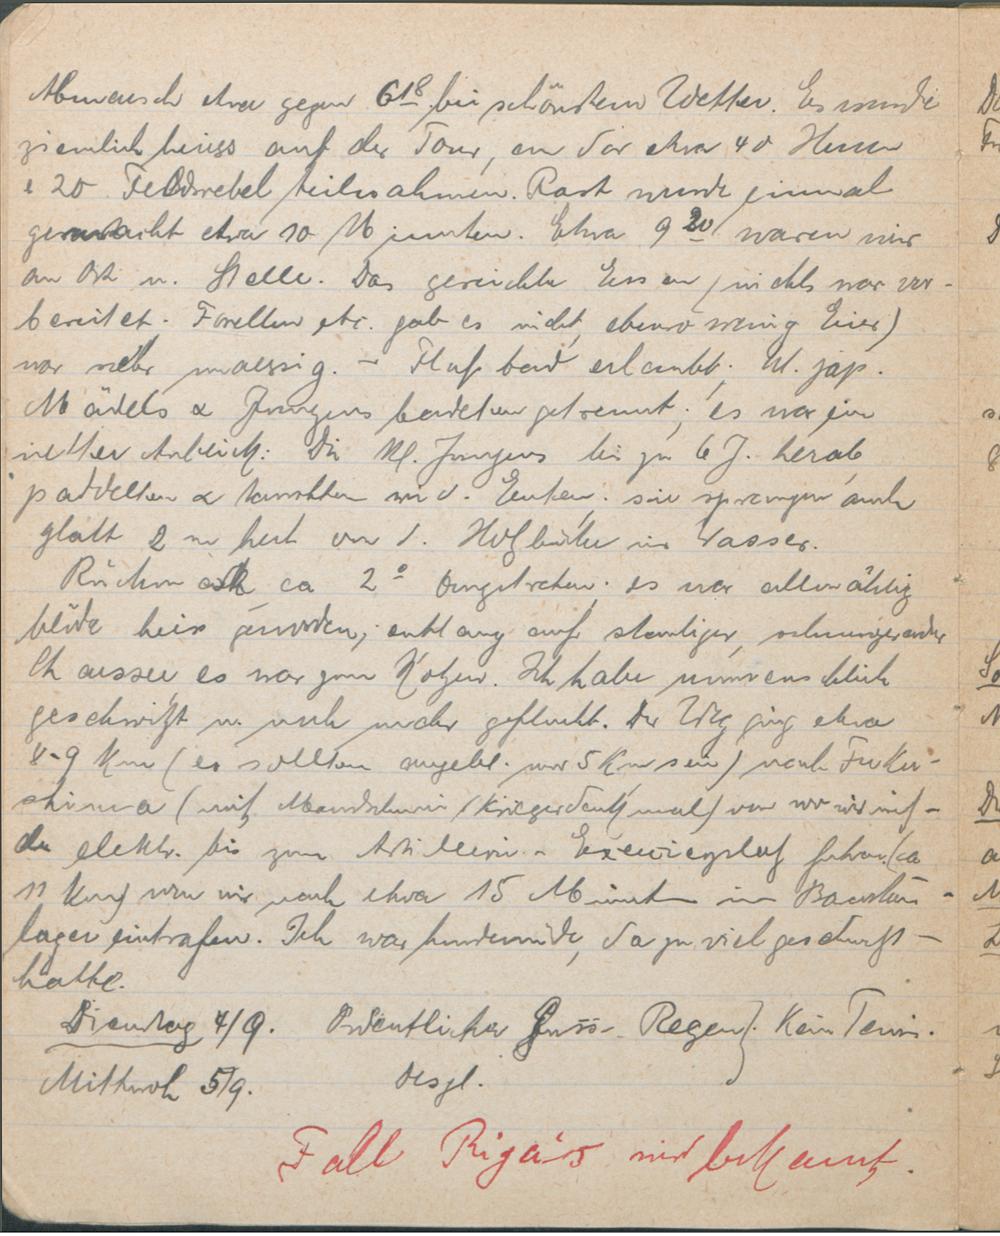 Abmarsch etwa gegen 6 18 bei schönstem Wetter. Es wurde
ziemlich heiss auf der Tour, an der etwa 40 Herren
& 20 Feldwebel teilnahmen. Rast wurde einmal
gemacht etwa 10 Minuten. Etwa 9 20 waren wir
an Ort u. Stelle. Das gereichte Essen (nichts war vor-
bereitet. Forellen etc. gab es nicht, ebenso wenig Eier)
war sehr maessig. - Flussbad erlaubt. Kl. jap.
Mädels & Jungens badeten getrennt; es war ein
netter Anblick: Die kl. Jungens bis zu 6 J. herab
paddelten & tauchten wie d. Enten. sie sprangen auch
glatt 2 m hoch von d. Holzbrücke ins Wasser.
Rückmarsch ca 2 0 angetreten. es war allmählig
blöde heiss geworden; entlang auf staubiger,
Chaussee es war zum Kotzen. Ich habe unmenschlich
geschwitzt u. noch mehr geflucht. Der Weg ging etwa
8-9 Km (es sollten angebl. nur 5 Km sein) nach Fuku-
shima (mit Kriegerdenkmal) von wo wir mit
der elektr. bis zum Artillerie - Exercierplatz fuhren (ca
11 Km) von wo wir nach etwa 15 Minuten im Baracken-
lager eintrafen. Ich war hundemüde, da zu viel geschwitzt
hatte.
Dienstag 4/9. Ordentlicher Guss- Regen). Kein Tennis.
Mittwoch 5/9. desgl.
Fall Rigárs wird bekannt.